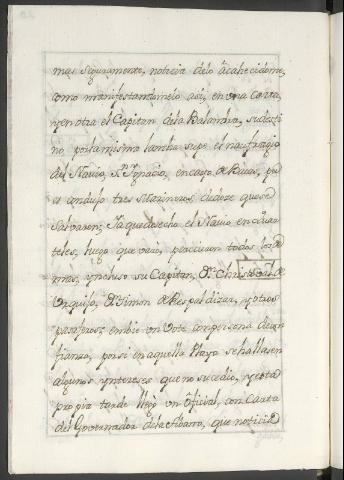 mas seguramente, noticia delo acahecidome,
como manifestandomelo asi, en una Carta,
y en otra el Capitan dela Balandra, su desti
no por la misma lancha supe el naufragio
del Navio, Sn. Ygnacio, en cayo de Bacas, pu
es condujo tres Marineros de doze que se
Salvaron; Ya que desecho el Navio en
teles, luego que varó, perecieron todos los de
mas, yncluso su Capitan, Dn. Christoval de
Urquijo, Dn. Simon de Respaldizar, y otros
pasageros; embie un Vote con persona de con
fianza, por si en aquella Playa se hallasen
algunos yntereses que no sucedio, y esta
propia tarde llegó un Oficial, con Carta
del Governador dela que noticia